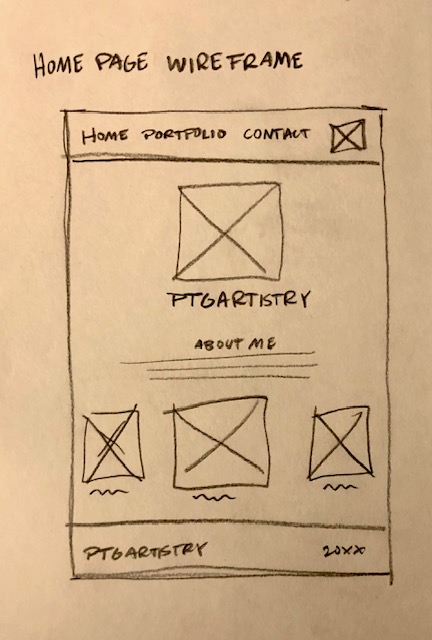 HOME PAGE WIREFRAME
HOME PORTFOLIO CONTACT
PTGARTISTRY
ABOUT ME
PTGARTISTRY 20XX